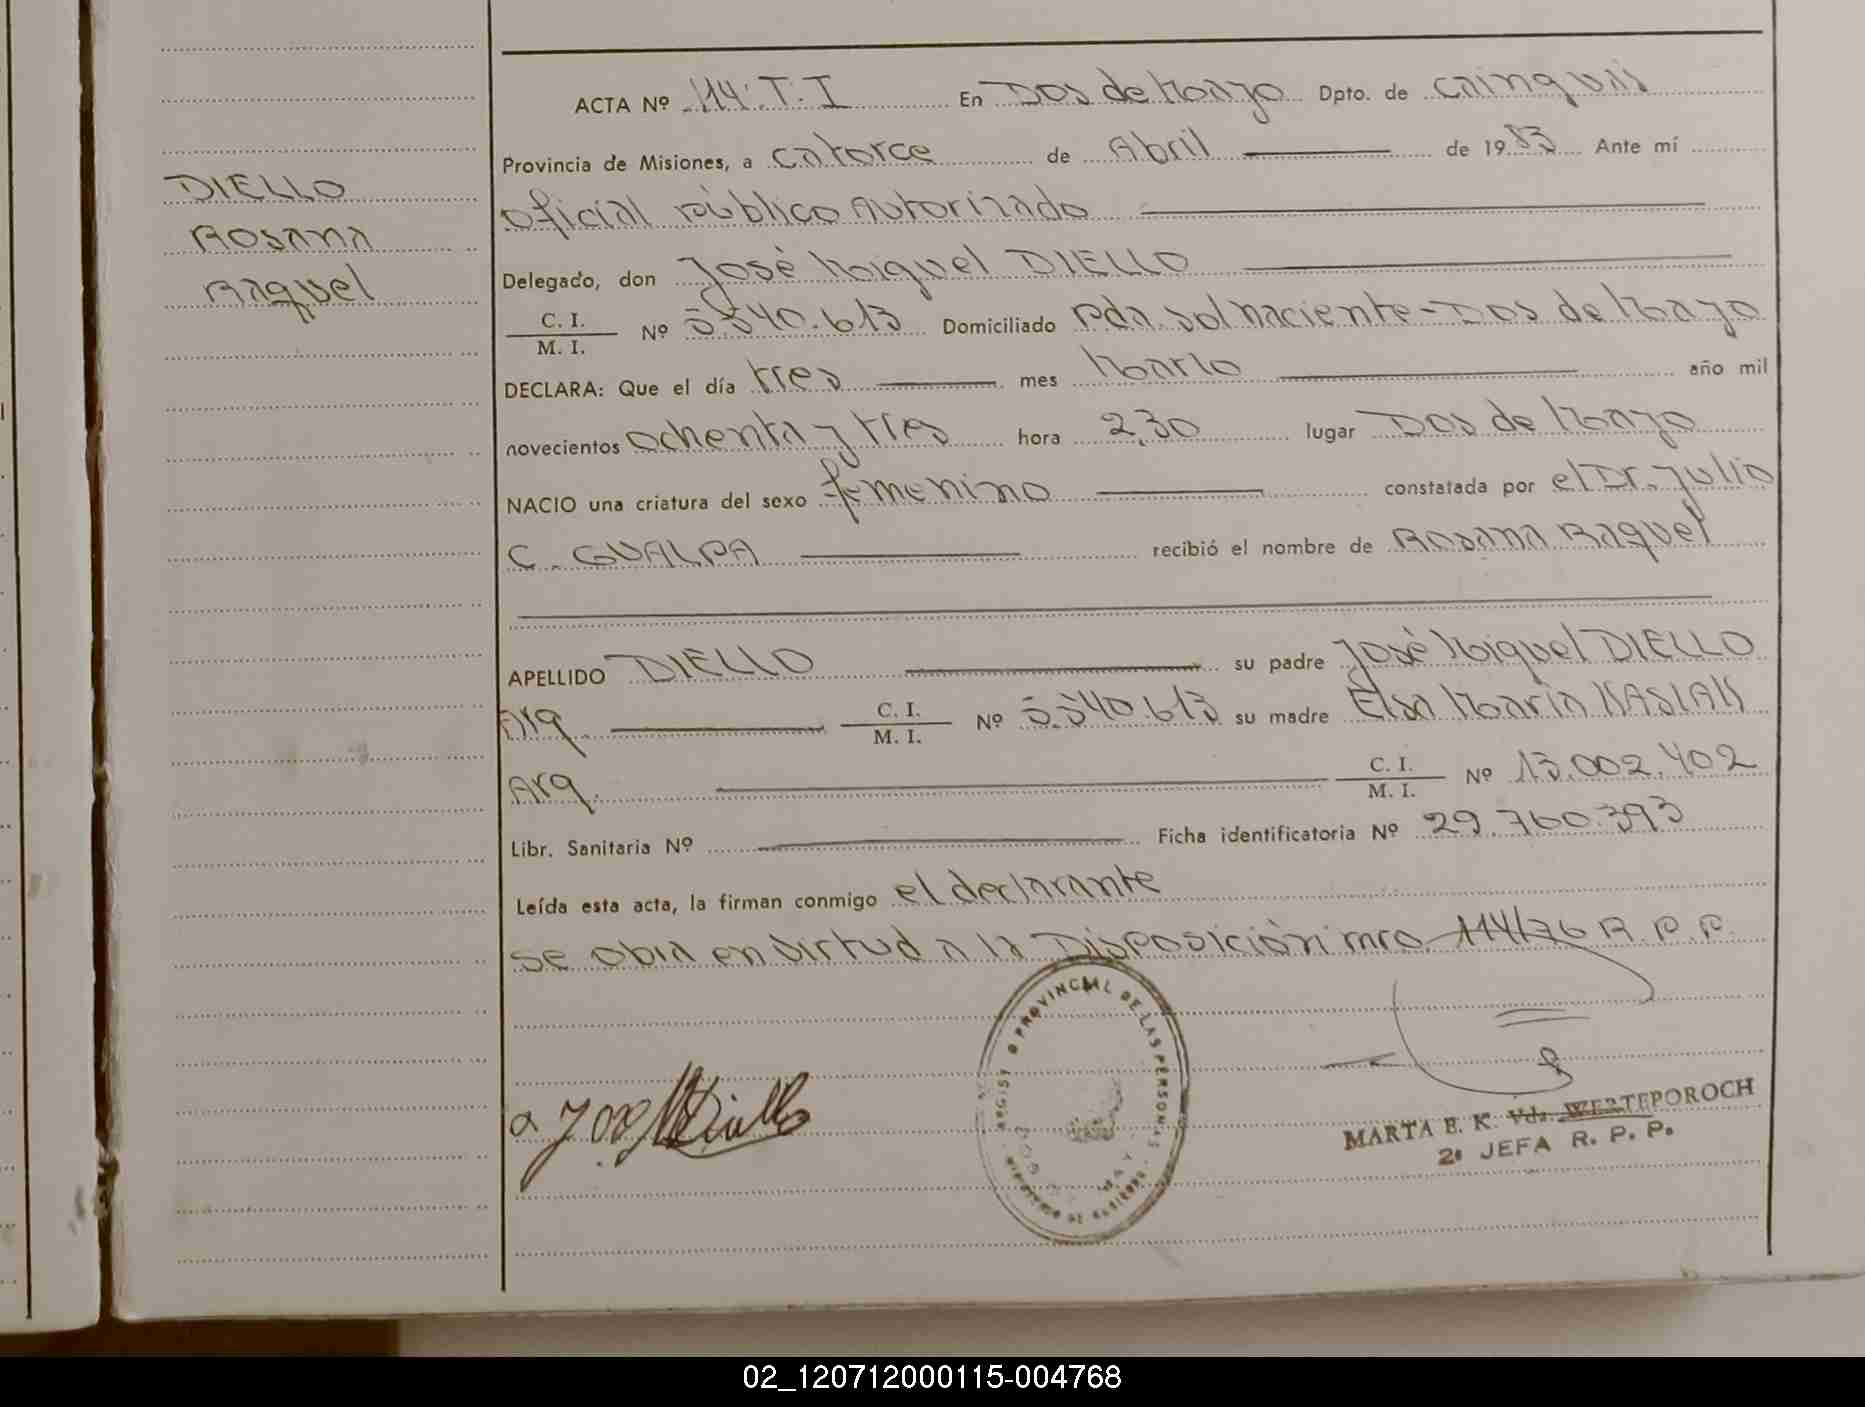 ACTA Nº 114. T. I En Dos de Mayo Dpto. de Cainguás
Provincia de Misiones, a catorce de Abril de 1983 Ante mí
oficial público Autorizado
DIELLO
ROSANA
Raquel
Delegado, don José Miguel DIELLO
C. I.
M. I. Nº 5.540.613 Domiciliado Pda. sol naciente - Dos de Mayo
DECLARA: Que el día tres mes Marzo año mil
novecientos ochenta y tres hora 2,30 lugar Dos de Mayo
NACIO una criatura del sexo femenino constatada por el Dr. Julio
C. GUALPA recibió el nombre de Rosana Raquel
APELLIDO DIELLO su padre José Miguel DIELLO
Arg. C. I.
M. I. Nº 5.540.613 su madre Elsa María
Arg. C. I.
M. I. Nº 13.002.402
Libr. Sanitaria Nº Ficha identificatoria Nº 29.760.393
Leída esta acta, la firman conmigo el declarante
se obra en virtud a la Disposición nro. 114/76 R. P. P.
PROVINCIAL DE LAS PERSONAS
MARTA E. K. Vda. WERTEPOROCH
2ª JEFA R. P. P.
02_120712000115-004768